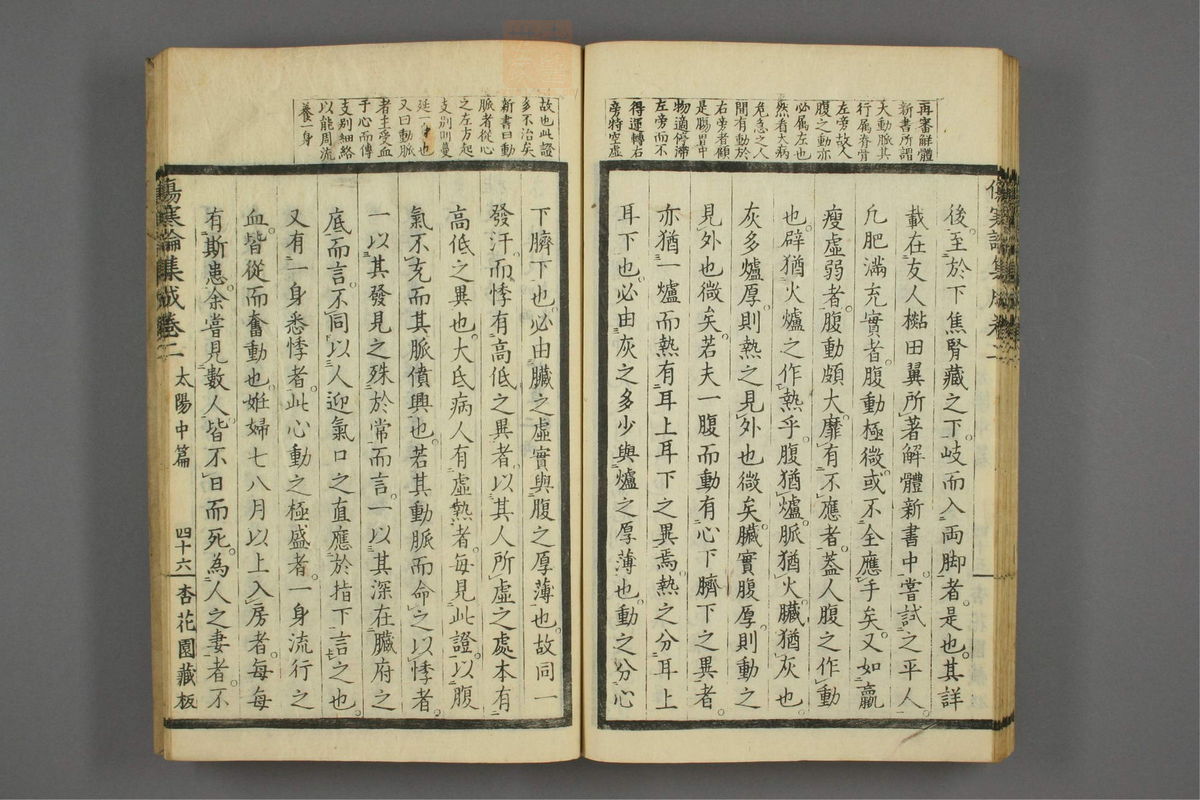 再審解體
新書所謂
大動脈其
行属脊骨
左旁故人
腹之動亦
必属左也
然看大病
危急之人
間有動於
右旁者顧
是腸胃中
物適停滞
左旁而不
得運轉右
旁特空虚
後至於下焦腎藏之下岐而入両脚者是也其詳
載在友人檆田翼所著解體新書中嘗試之平人
凢肥滿充實者腹動極微或不全應手矣又如羸
瘦虚弱者腹動頗大靡有不應者蓋人腹之作動
也辟猶火爐之作熱乎腹猶爐脈猶火臓猶灰也
灰多爐厚則熱之見外也微矣臓實腹厚則動之
見外也微矣若夫一腹而動有心下臍下之異者
亦猶一爐而熱有耳上耳下之異焉熱之分耳上
耳下也必由灰之多少與爐之厚薄也動之分心
故也此證
多不治矣
新書曰動
脈者從心
之左方起
支別則蔓
延一身也
又曰動脈
者主受血
于心而傳
支別細絡
以能周流
養一身
下臍下也必由臓之虚實與腹之厚薄也故同一
發汗而悸有高低之異者以其人所虚之處本有
高低之異也大氐病人有虚熱者毎見此證以腹
氣不充而其脈僨興也若其動脈而命之以悸者
一以其發見之殊於常而言一以其深在臓府之
底而言不同以人迎氣口之直應於指下言之也
又有一身悉悸者此心動之極盛者一身流行之
血皆從而奮動也姙婦七八月以上入房者毎毎
有斯患余嘗見數人皆不日而死為人之妻者不
傷寒論集成卷二 太陽中篇 四十六 杏花園藏板